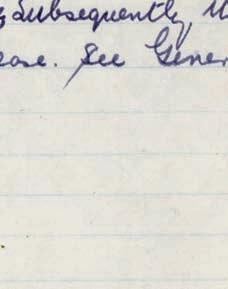 Subsequently,
ease. See Gener